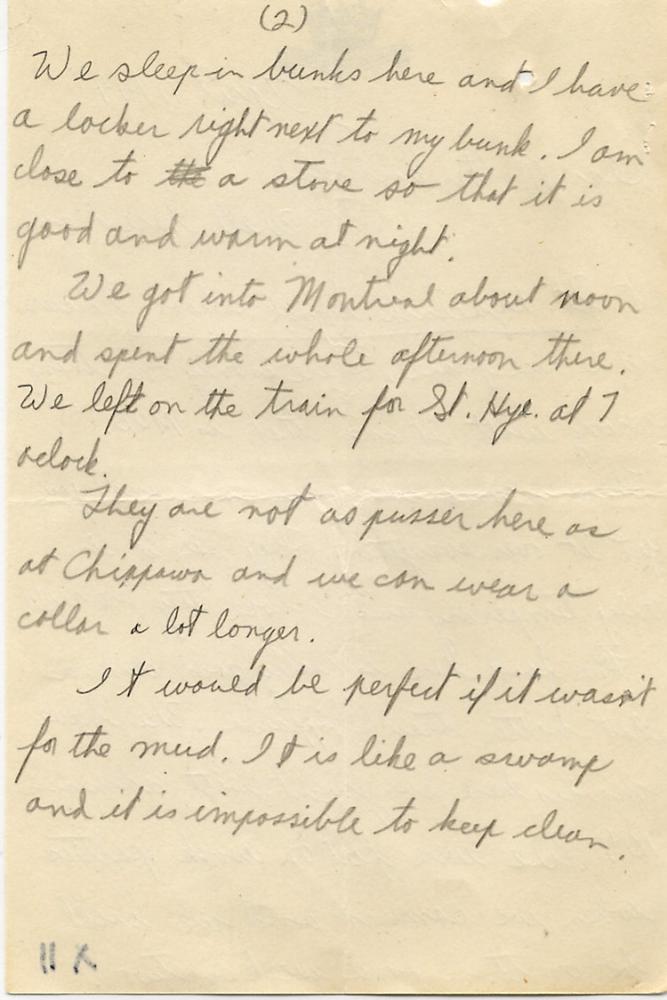 (2)
We sleep in bunks here and I have
a locker right next to my bunk. I am
close to the a stove so that it is
good and warm at night.
We got into Montreal about noon
and spent the whole afternoon there.
We left on the train for St. Hye. at 7
oclock.
They are not as pusser here as
at Chippawa and we can wear a
collar a lot longer.
It would be perfect if it wasn't
for the mud. It is like a swamp
and it is impossible to keep clean.
11 X